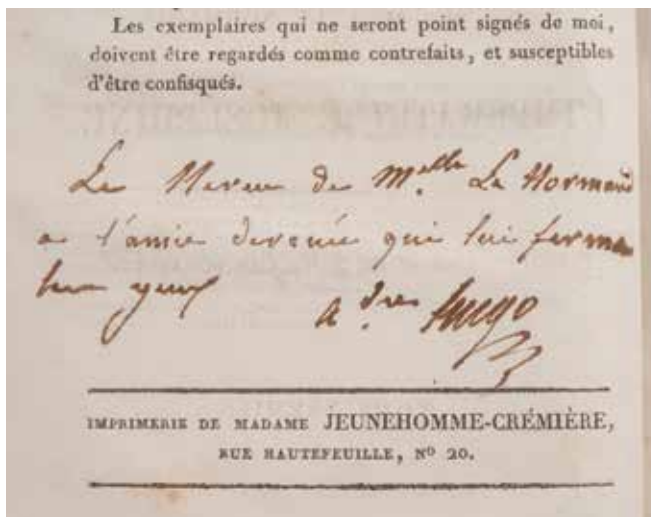 Les exemplaires qui ne seront point signés de moi,
doivent être regardés comme contrefaits, et susceptibles
d'être confisqués.
Le Neveu de M.elle Le Normand
a l'amie devouée qui lui ferma
les yeux
hugo
IMPRIMERIE DE MADAME JEUNEHOMME-CRÉMIÈRE,
RUE HAUTEFEUILLE, N° 20.